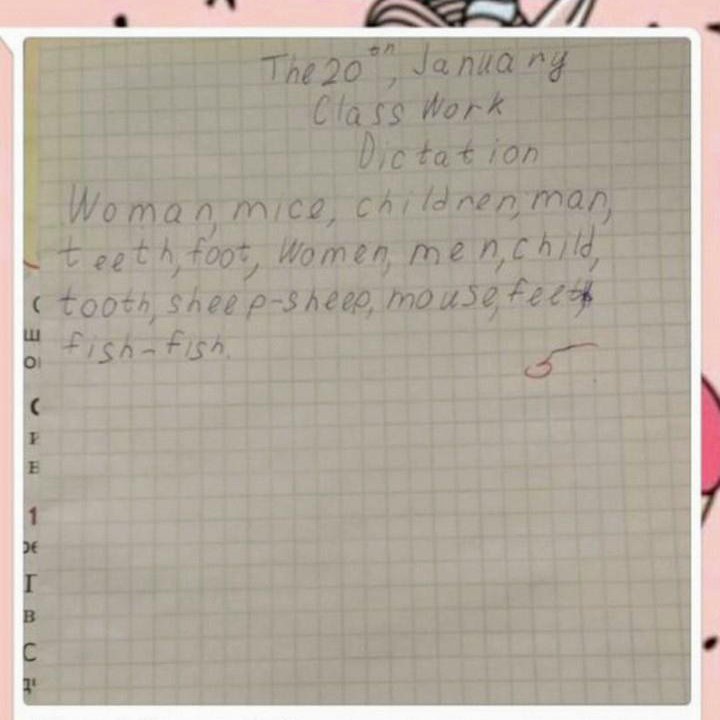 The 20th, January
Class Work
Dictation
Woman, mice, children, man,
teeth, foot, Women, men, child,
tooth, sheep-sheep, mouse, feet,
fish-fish.
5